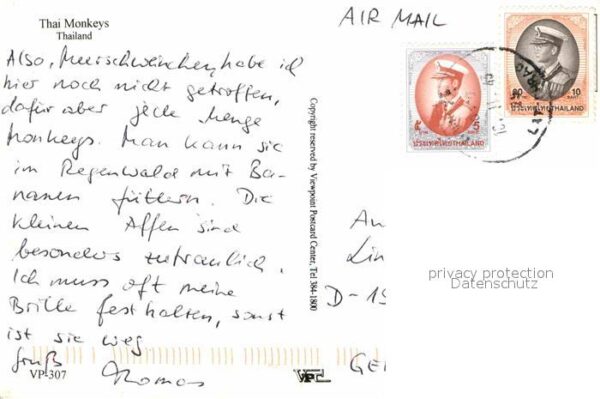 Thai Monkeys
Thailand
AIR MAIL
Also, Meerschweinchen habe ich
hier noch nicht getroffen,
dafür aber jede Menge
Monkeys. Man kann sie
im Regenwald mit Ba-
nanen füttern. Die
kleinen Affen sind
besonders zutraulich.
Ich muss oft meine
Brille festhalten, sonst
ist sie weg
Gruß
Thomas
VP-307
Copyright reserved by Viewpoint Postcard Center, Tel 384-1800
VPC
๕ 5
ประเทศไทย THAILAND
๑๐ 10
ประเทศไทย THAILAND
An
Lin
D-19
GE
privacy protection
Datenschutz